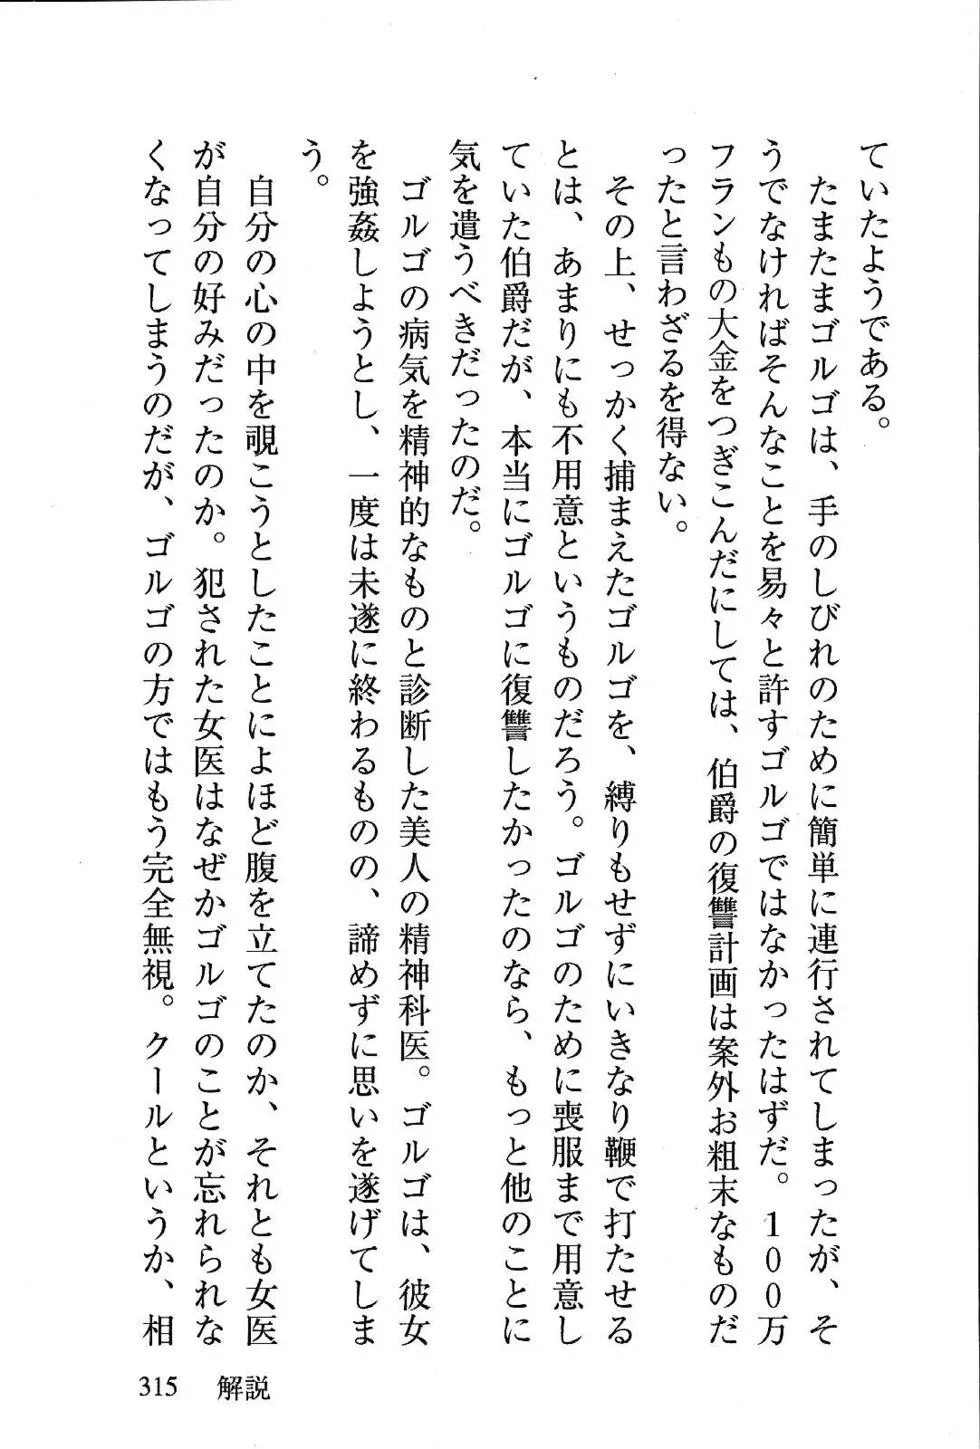 ていたようである。
　たまたまゴルゴは、手のしびれのために簡単に連行されてしまったが、そ
うでなければそんなことを易々と許すゴルゴではなかったはずだ。１００万
フランもの大金をつぎこんだにしては、伯爵の復讐計画は案外お粗末なものだ
ったと言わざるを得ない。
　その上、せっかく捕まえたゴルゴを、縛りもせずにいきなり鞭で打たせる
とは、あまりにも不用意というものだろう。ゴルゴのために喪服まで用意し
ていた伯爵だが、本当にゴルゴに復讐したかったのなら、もっと他のことに
気を遣うべきだったのだ。
　ゴルゴの病気を精神的なものと診断した美人の精神科医。ゴルゴは、彼女
を強姦しようとし、一度は未遂に終わるものの、諦めずに思いを遂げてしま
う。
　自分の心の中を覗こうとしたことによほど腹を立てたのか、それとも女医
が自分の好みだったのか。犯された女医はなぜかゴルゴのことが忘れられな
くなってしまうのだが、ゴルゴの方ではもう完全無視。クールというか、相
315　解説